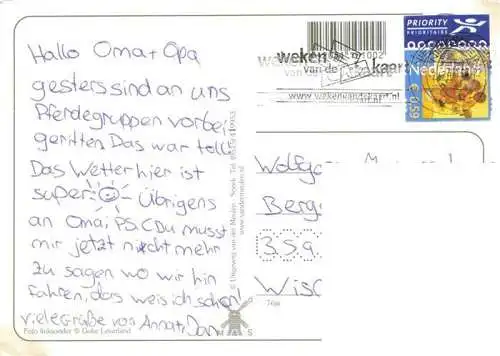 Hallo Oma+Opa
gesters sind an uns
Pferdegruppen vorbei
geritten Das war toll!
Das Wetter hier ist
super Übrigens
an Oma: PS. (Du musst
mir jetzt nicht mehr
zu sagen wo wir hin
fahren, das weis ich schon!
viele grüße von Anna+Dan
Foto Inkzonder © Goke Leverland
© Uitgeverij van der Meulen - Sneek Tel. 0515-419953
www.vandermeulen.nl
1002
weken
van de kaart
www.wekenvandekaart.nl
PRIORITY
PRIORITAIRE
Nederland
€ 0,59
Wolfg
Berg
3.5.9.
Wisc